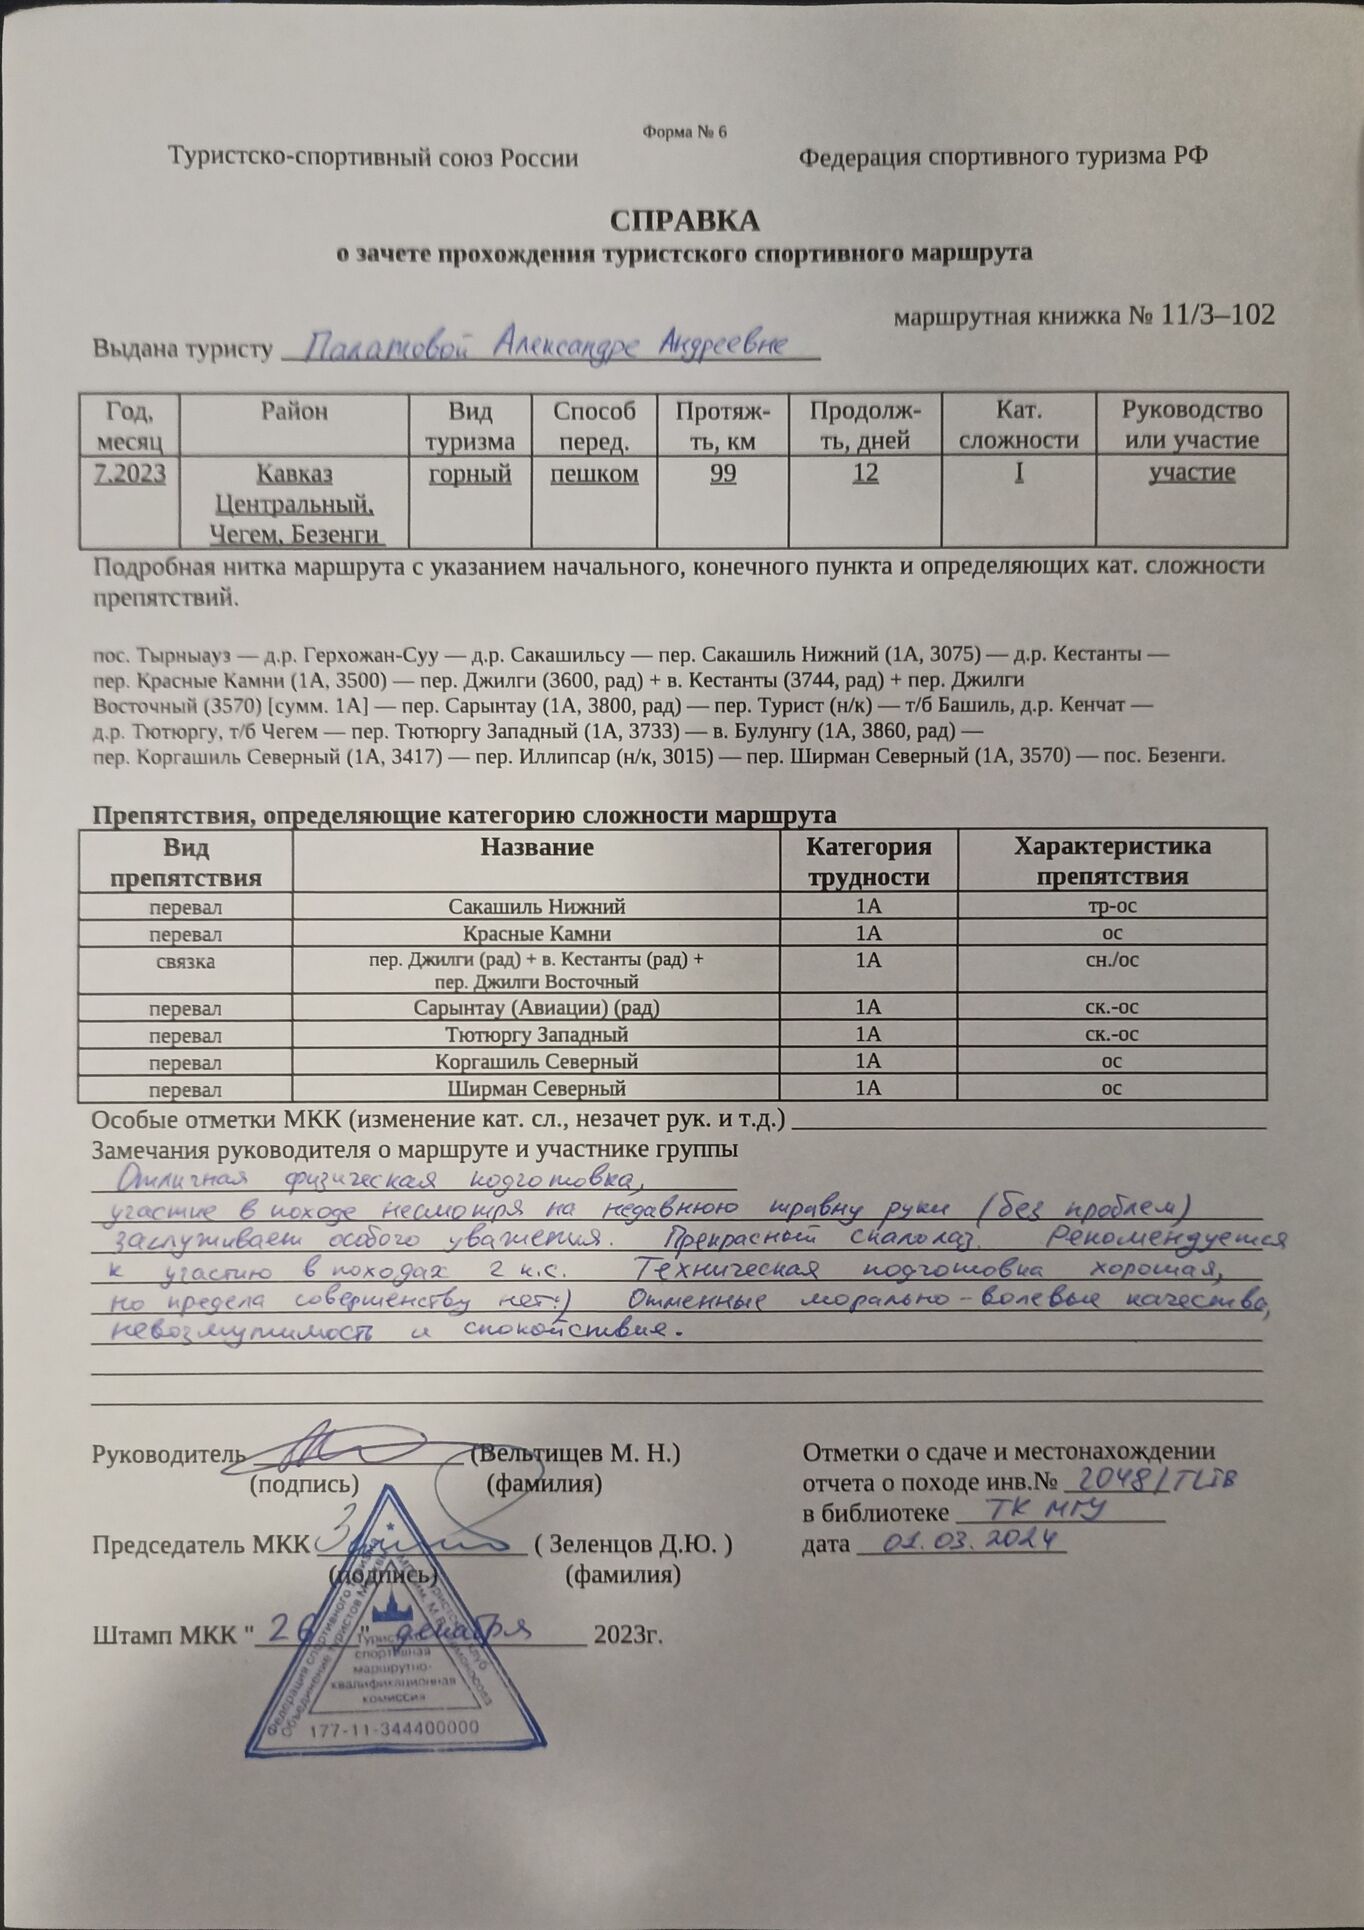 Форма № 6
Туристско-спортивный союз России Федерация спортивного туризма РФ
СПРАВКА
о зачете прохождения туристского спортивного маршрута
маршрутная книжка № 11/3–102
Выдана туристу Палатовой Александре Андреевне
Год, месяц Район Вид туризма Способ перед. Протяж-ть, км Продолж-ть, дней Кат. сложности Руководство или участие
7.2023 Кавказ Центральный, Чегем, Безенги горный пешком 99 12 I участие
Подробная нитка маршрута с указанием начального, конечного пункта и определяющих кат. сложности
препятствий.
пос. Тырныауз — д.р. Герхожан-Суу — д.р. Сакашильсу — пер. Сакашиль Нижний (1А, 3075) — д.р. Кестанты —
пер. Красные Камни (1А, 3500) — пер. Джилги (3600, рад) + в. Кестанты (3744, рад) + пер. Джилги
Восточный (3570) [сумм. 1А] — пер. Сарынтау (1А, 3800, рад) — пер. Турист (н/к) — т/б Башиль, д.р. Кенчат —
д.р. Тютюргу, т/б Чегем — пер. Тютюргу Западный (1А, 3733) — в. Булунгу (1А, 3860, рад) —
пер. Коргашиль Северный (1А, 3417) — пер. Иллипсар (н/к, 3015) — пер. Ширман Северный (1А, 3570) — пос. Безенги.
Препятствия, определяющие категорию сложности маршрута
Вид препятствия Название Категория трудности Характеристика препятствия
перевал Сакашиль Нижний 1А тр-ос
перевал Красные Камни 1А ос
связка пер. Джилги (рад) + в. Кестанты (рад) + пер. Джилги Восточный 1А сн./ос
перевал Сарынтау (Авиации) (рад) 1А ск.-ос
перевал Тютюргу Западный 1А ск.-ос
перевал Коргашиль Северный 1А ос
перевал Ширман Северный 1А ос
Особые отметки МКК (изменение кат. сл., незачет рук. и т.д.)
Замечания руководителя о маршруте и участнике группы
Отличная физическая подготовка,
участие в походе несмотря на недавнюю травму руки (без проблем)
заслуживает особого уважения. Прекрасный скалолаз. Рекомендуется
к участию в походах 2 к.с. Техническая подготовка хорошая,
но предела совершенству нет:) Отменные морально-волевые качества,
невозмутимость и спокойствие.
Руководитель (Вельтищев М. Н.)
(подпись) (фамилия)
Отметки о сдаче и местонахождении
отчета о походе инв.№ 2048/
в библиотеке ТК МГУ
дата 01.03.2024
Председатель МКК ( Зеленцов Д.Ю. )
(подпись) (фамилия)
Штамп МКК "26" декабря 2023г.
Федерация спортивного туризма
Объединение туристов Москвы
Туристский клуб
им. М.В. Ломоносова
Туристская
спортивная
маршрутно-
квалификационная
комиссия
177-11-344400000